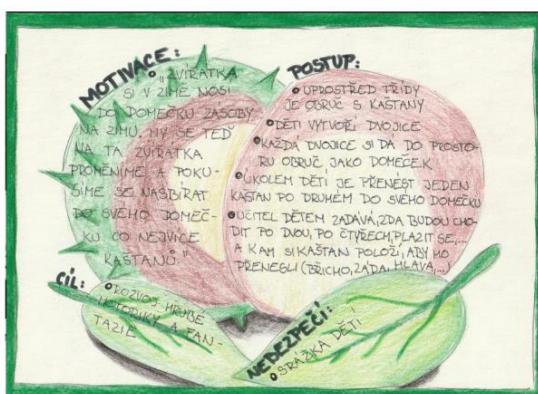 MOTIVACE:
• "ZVÍŘÁTKA
SI V ZIMĚ NOSÍ
DO DOMEČKU ZÁSOBY
NA ZIMU. MY SE TEĎ
NA TA ZVÍŘÁTKA
PROMĚNÍME A POKU-
SÍME SE NASBÍRAT
DO SVÉHO DOMEČ-
KU CO NEJVÍCE
KAŠTANŮ."
POSTUP:
• UPROSTŘED TŘÍDY
JE OBRUČ S KAŠTANY
• DĚTI VYTVOŘÍ DVOJICE
• KAŽDÁ DVOJICE SI DÁ DO PROSTO-
RU OBRUČ JAKO DOMEČEK
• ÚKOLEM DĚTÍ JE PŘENÉST JEDEN
KAŠTAN PO DRUHÉM DO SVÉHO DOMEČKU
• UČITEL DĚTEM ZADÁVÁ, ZDA BUDOU CHO-
DIT PO DVOU, PO ČTYŘECH, PLAZIT SE,...
A KAM SI KAŠTAN POLOŽÍ, ABY HO
PŘENESLI (BŘICHO, ZÁDA, HLAVA,...)
CÍL:
• ROZVOJ HRUBÉ
MOTORIKY A FAN-
TAZIE
NEBEZPEČÍ:
• SRÁŽKA DĚTÍ